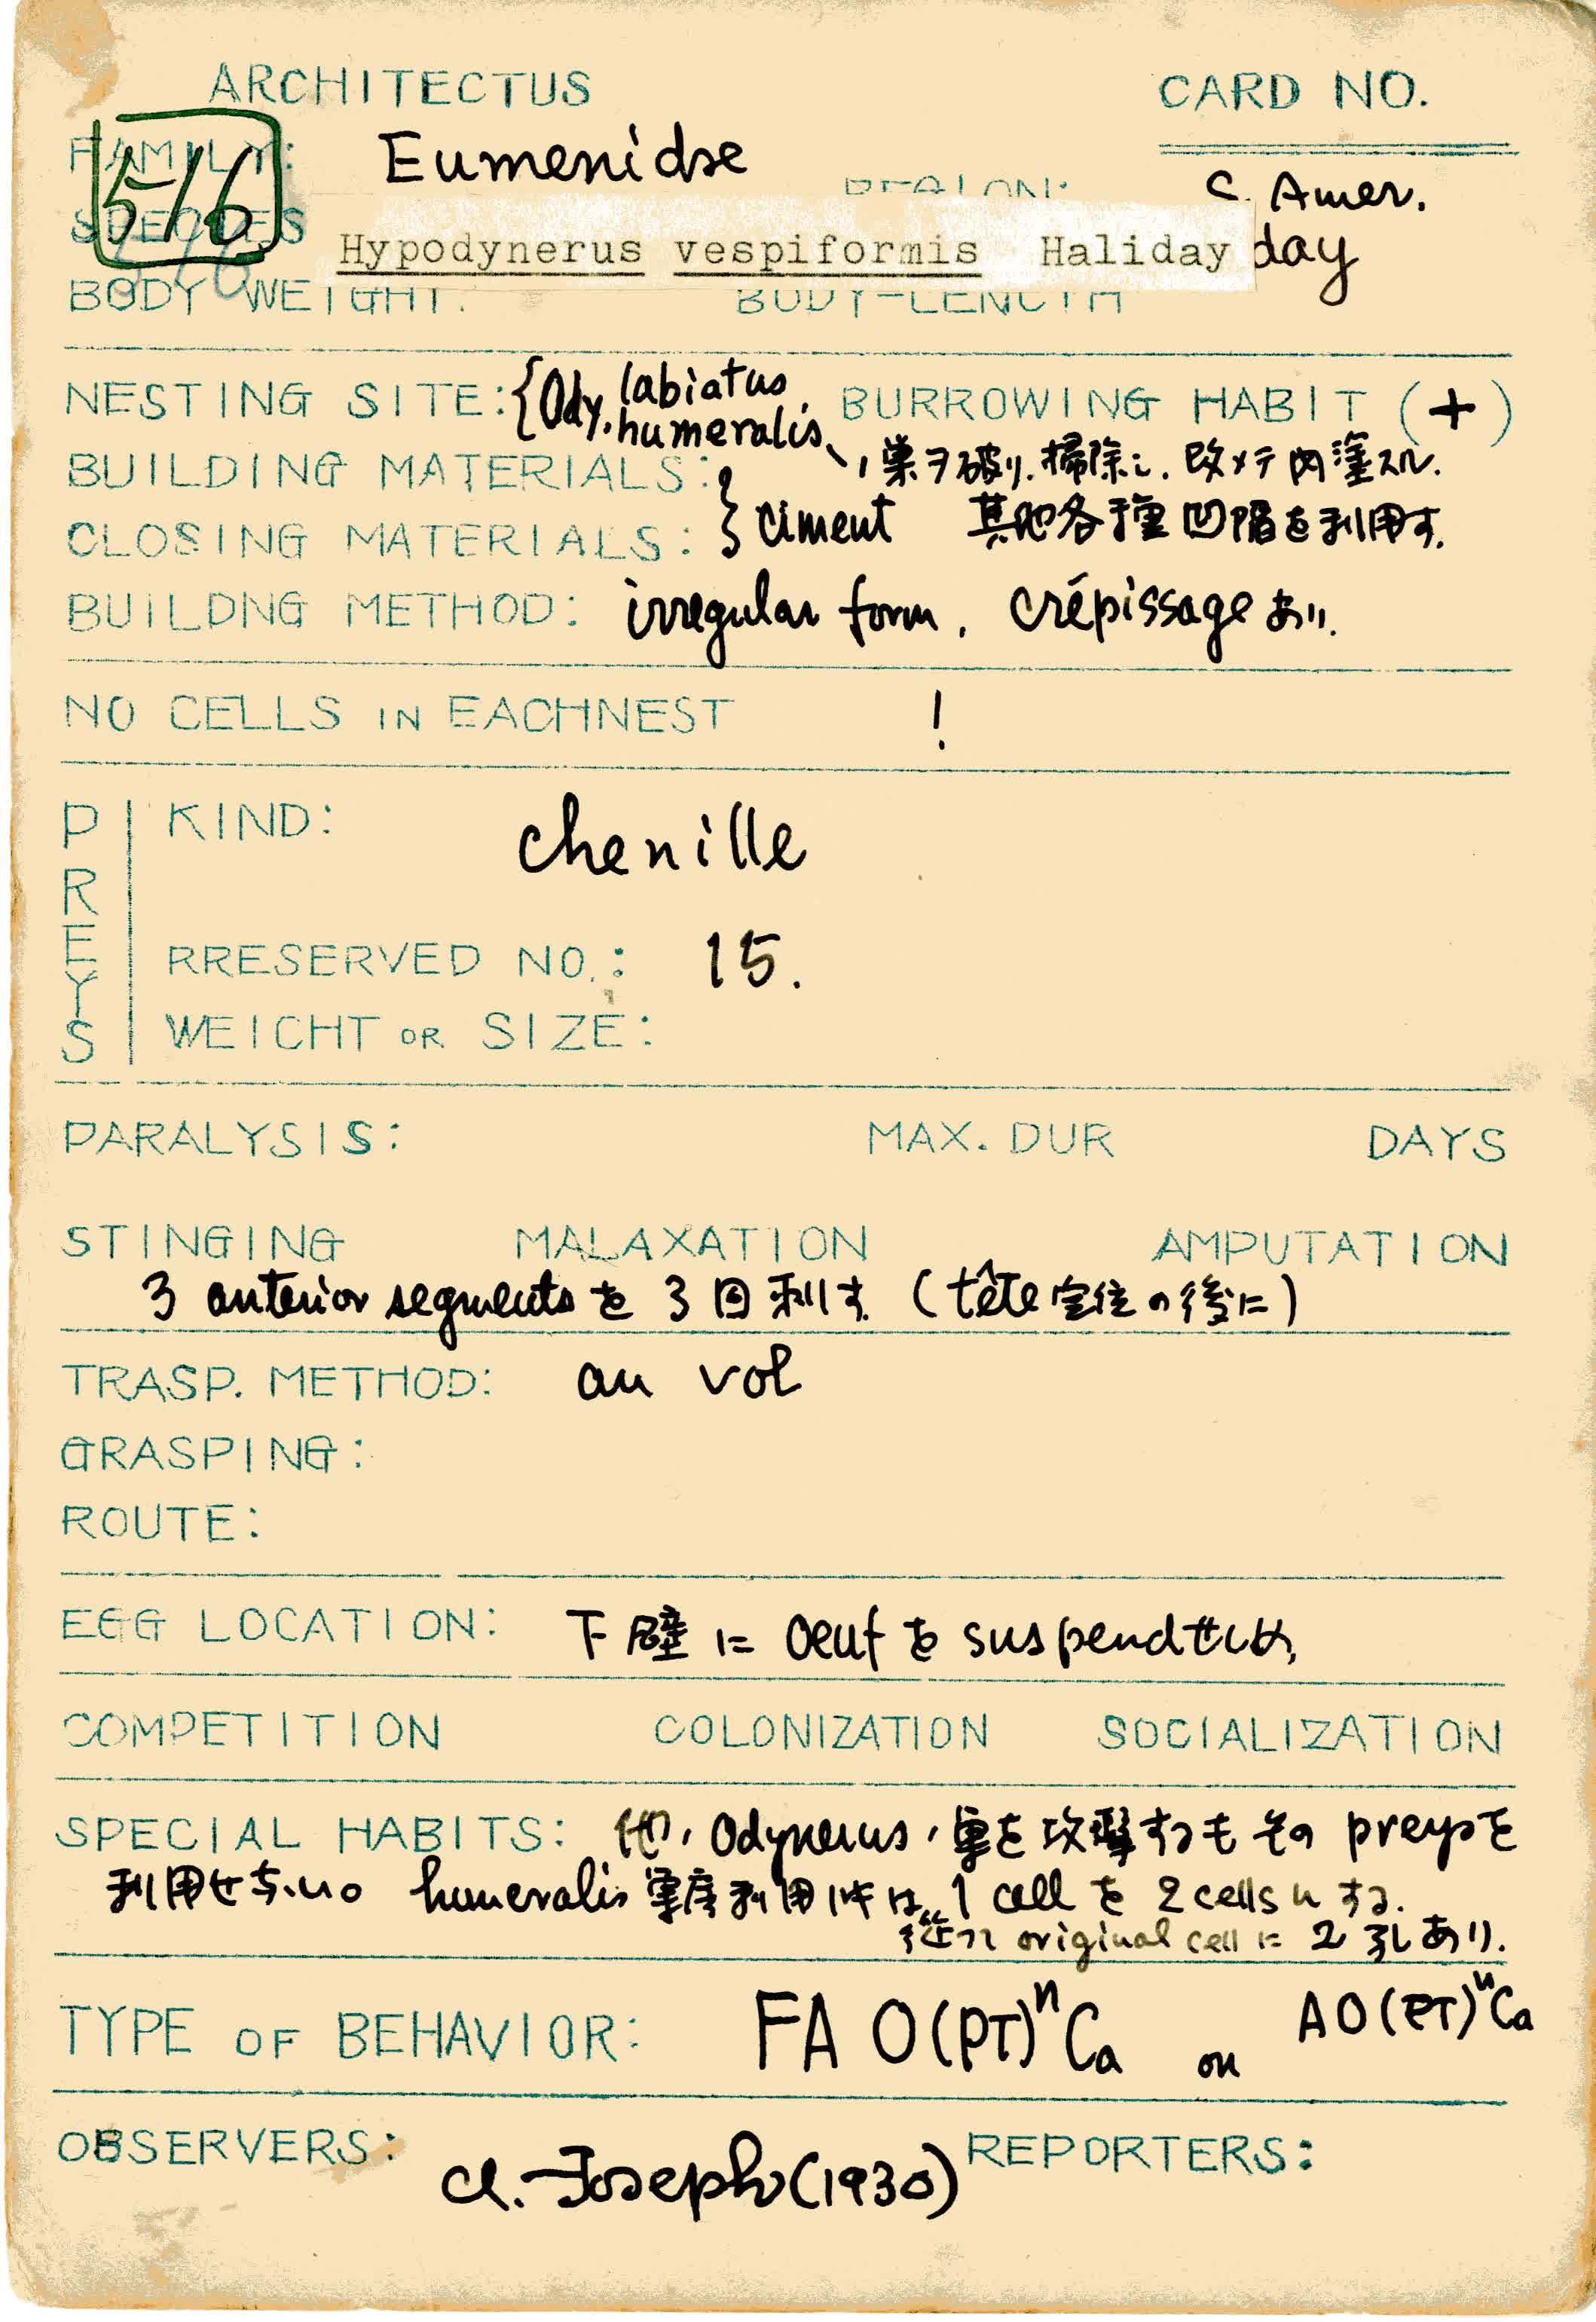 ARCHITECTUS CARD NO.
FAMILY: Eumenidae
516
REGION: S. Amer.
SPECIES Hypodynerus vespiformis Haliday day
BODY WEIGHT: BODY-LENGTH
NESTING SITE: { Ody. labiatus, BURROWING HABIT (+)
humeralis、ノ巣ヲ破リ.掃除し.改メテ内塗スル.
BUILDING MATERIALS:
CLOSING MATERIALS: } ciment 其他各種凹陥を利用す.
BUILDNG METHOD: irregular form. crépissageあり.
NO CELLS IN EACHNEST !
PREYS
KIND: chenille
RRESERVED NO.: 15.
WEICHT OR SIZE:
PARALYSIS: MAX. DUR DAYS
STINGING MALAXATION AMPUTATION
3 anterior segmentsを3回刺す.(tête定位の後に)
TRASP. METHOD: au vol
GRASPING:
ROUTE:
EGG LOCATION: 下壁にoeufをsuspendせしめ,
COMPETITION COLONIZATION SOCIALIZATION
SPECIAL HABITS: 他ノOdynerusノ巣を攻撃するもそのpreysを
利用せぢ、い。humeralis 利用 は、1 cellを2 cellsにする.
従つてoriginal cellに2孔あり.
TYPE OF BEHAVIOR: FA O(PT)ⁿCa ou AO(PT)ⁿCa
OBSERVERS: Cl. Joseph (1930) REPORTERS: